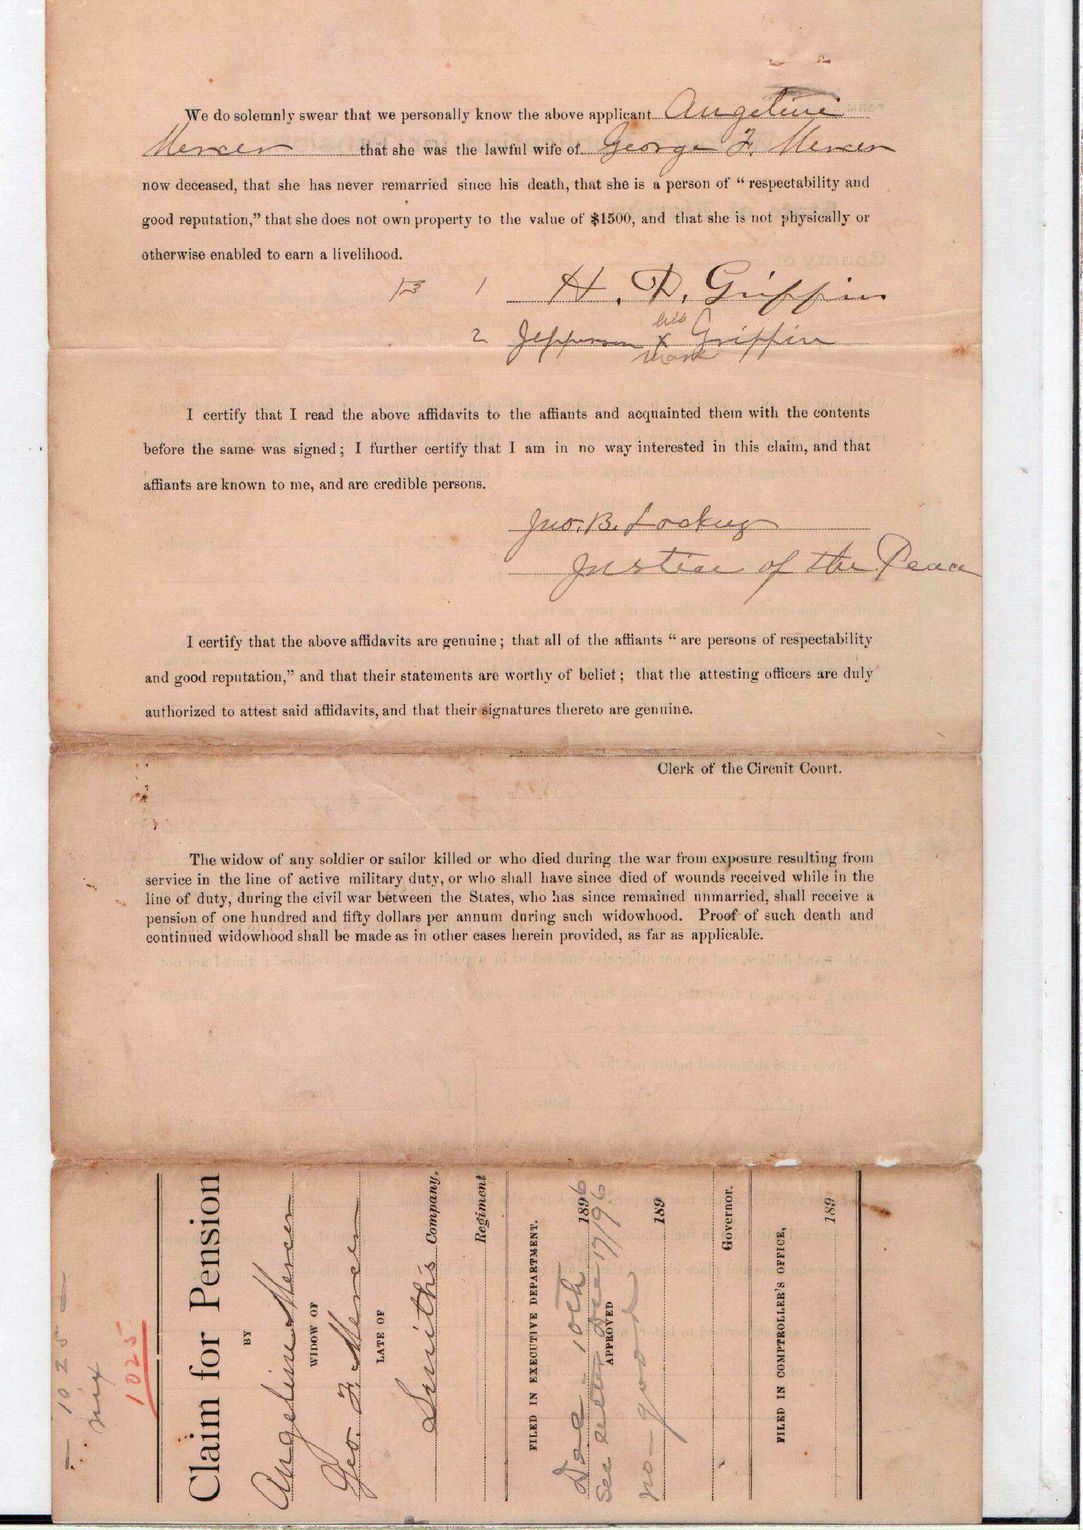 We do solemnly swear that we personally know the above applicant Angeline
Mercer that she was the lawful wife of George F. Mercer
now deceased, that she has never remarried since his death, that she is a person of “ respectability and
good reputation,” that she does not own property to the value of $1500, and that she is not physically or
otherwise enabled to earn a livelihood.
13 1 H. D. Griffin
his
2 Jefferson X Griffin
mark
I certify that I read the above affidavits to the affiants and acquainted them with the contents
before the same was signed ; I further certify that I am in no way interested in this claim, and that
affiants are known to me, and are credible persons.
Jno. B.
Justice of the Peace
I certify that the above affidavits are genuine ; that all of the affiants “ are persons of respectability
and good reputation,” and that their statements are worthy of belief ; that the attesting officers are duly
authorized to attest said affidavits, and that their signatures thereto are genuine.
Clerk of the Circuit Court.
The widow of any soldier or sailor killed or who died during the war from exposure resulting from
service in the line of active military duty, or who shall have since died of wounds received while in the
line of duty, during the civil war between the States, who has since remained unmarried, shall receive a
pension of one hundred and fifty dollars per annum during such widowhood. Proof of such death and
continued widowhood shall be made as in other cases herein provided, as far as applicable.
- 1025 -
nix
1025
Claim for Pension
BY
Angeline Mercer
WIDOW OF
Geo. F. Mercer
LATE OF
Smith's Company,
Regiment
FILED IN EXECUTIVE DEPARTMENT.
Dec - 10th 1896
See letter Dec 17/96
APPROVED
no-good 189
Governor.
FILED IN COMPTROLLER'S OFFICE,
189